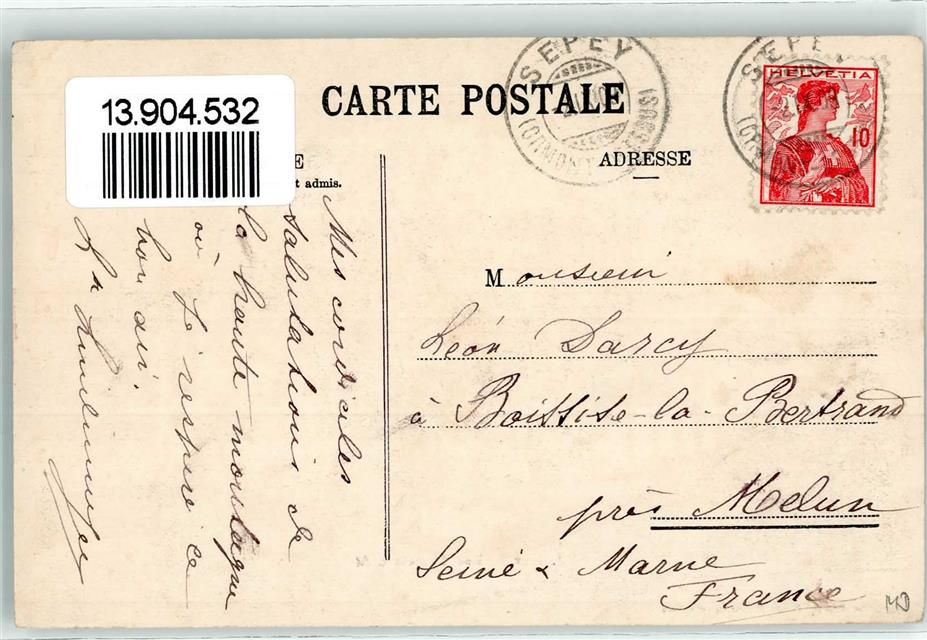 13.904.532
CARTE POSTALE
SEPEY
(ORMONT
SEPEY
HELVETIA
10
ADRESSE
E
t admis.
Mes cordiales
salutations de
la haute montagne
où je respire ce
bon air.
Monsieur
Léon Darcy
à Boissise-la-Bertrand
près Melun
Seine & Marne
France